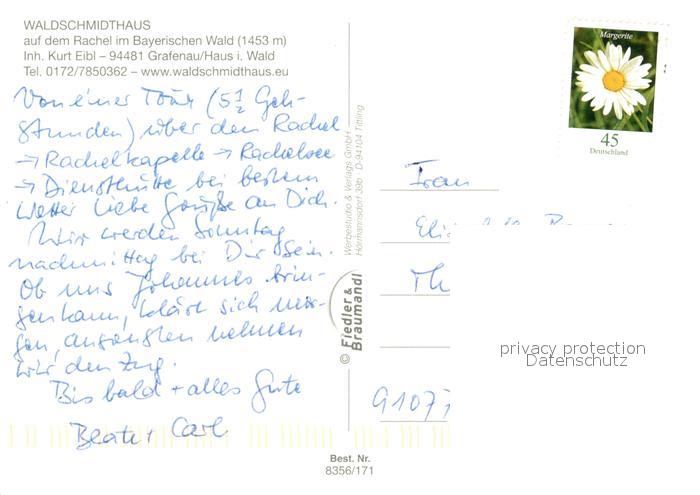 WALDSCHMIDTHAUS
auf dem Rachel im Bayerischen Wald (1453 m)
Inh. Kurt Eibl – 94481 Grafenau/Haus i. Wald
Tel. 0172/7850362 – www.waldschmidthaus.eu
Von einer Tour (5 1/2 Geh-
stunden) über den Rachel
→ Rachelkapelle → Rachelsee
→ Diensthütte bei bestem
Wetter liebe Grüße an Dich.
Wir werden Sonntag
nachmittag bei Dir sein.
Ob uns Johannes brin-
gen kann, klärt sich mor-
gen, ansonsten nehmen
wir den Zug.
Bis bald + alles Gute
Beate + Carl
Werbestudio & Verlags GmbH
Hörmannsdorf 39b D-94104 Tittling
© Fiedler &
Braumandl
Best. Nr.
8356/171
Margerite
45
Deutschland
Frau
Th
91077
privacy protection
Datenschutz